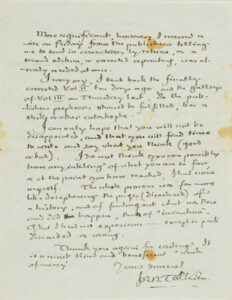 More significant, however, I received a
wire on Friday from the publishers telling
me to send in corrections by return, as a
second edition, or corrected reprinting, was al-
ready needed at once.
I may say, I sent back the finally
corrected Vol II ten days ago, and the galleys
of Vol III on Thursday last. So the pub-
lishers prophecies should be fulfilled, bar a
strike or other catastrophe.
I can only hope that you will not be
disappointed, and that you will find time
to write and say what you think (good
or bad). I do not think you can possibly
have any inkling of what you are in for
at the point you have reached. I had none
myself. The whole process was far more
like deciphering the pages (disordered) of
a history, and of finding out what was there
and did happen, than of "invention".
That I had not experience except in parts
discarded or wrong.
Thank you again for writing. It
is a most kind and beneficent "work
of mercy".
Yours sincerely
JRR Tolkien